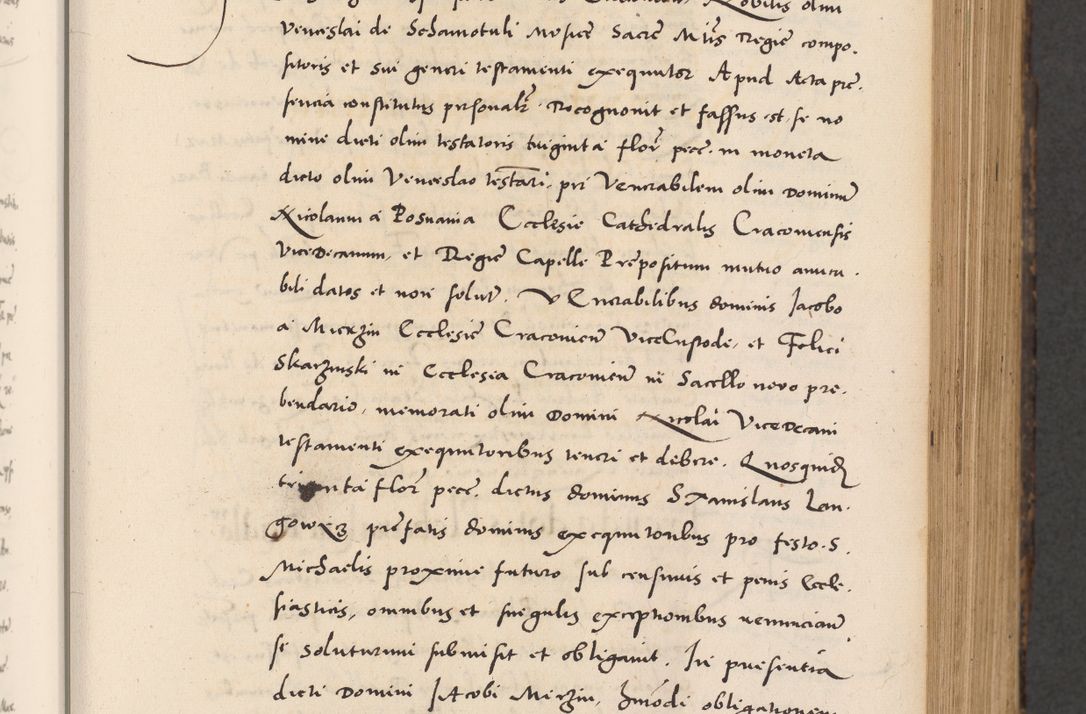 Nobilis olim
Venceslai de Schamotuli Musice Sacre Mtis Regie compo-
sitoris et sui generi testamenti exequutor Apud Acta pre-
sencia constitutus personalr Recognovit et fassus est se no
mine dicti olim testatoris triginta flor pece. in moneta
dicto olim Venceslao testari, per Venerabilem olim Dominum
Nicolaum a Posnania Ecclesie Cathedralis Cracoviensis
ViceDecanum, et Regie Capelle Prepositum mutuo amica-
bili datos et non solut. Venerabilibus dominis Jacobo
a Mierzin Ecclesie Cracovien ViceCustode, et Felici
Skarzinski in Ecclesia Cracovien in Sacello novo pre-
bendario, memorati olim Domini Nicolai ViceDecani
testamenti exequutoribus teneri et debere. Quosquid
triginta flor pece. dictus dominus Stanislaus Lan-
prefatis dominis exequutoribus pro festo S.
Michaelis proxime futuro sub censuris et penis Eccle-
siasticis, omnibus et singulis exceptionibus renunciam
se soluturum submisit et obligavit. In presentia
dicti Domini Jacobi Mierzin, hmodi obligationem